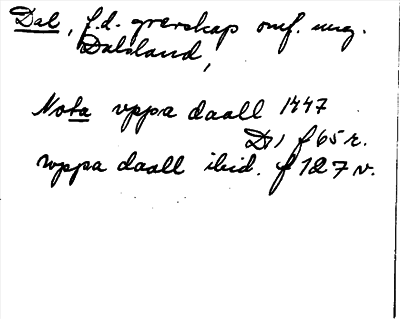 Dal, f.d. grevskap omf. ung.
Dalsland,
Nota vppa daall 1447
D1 f 65 r.
wppa daall ibid. f 127 v.